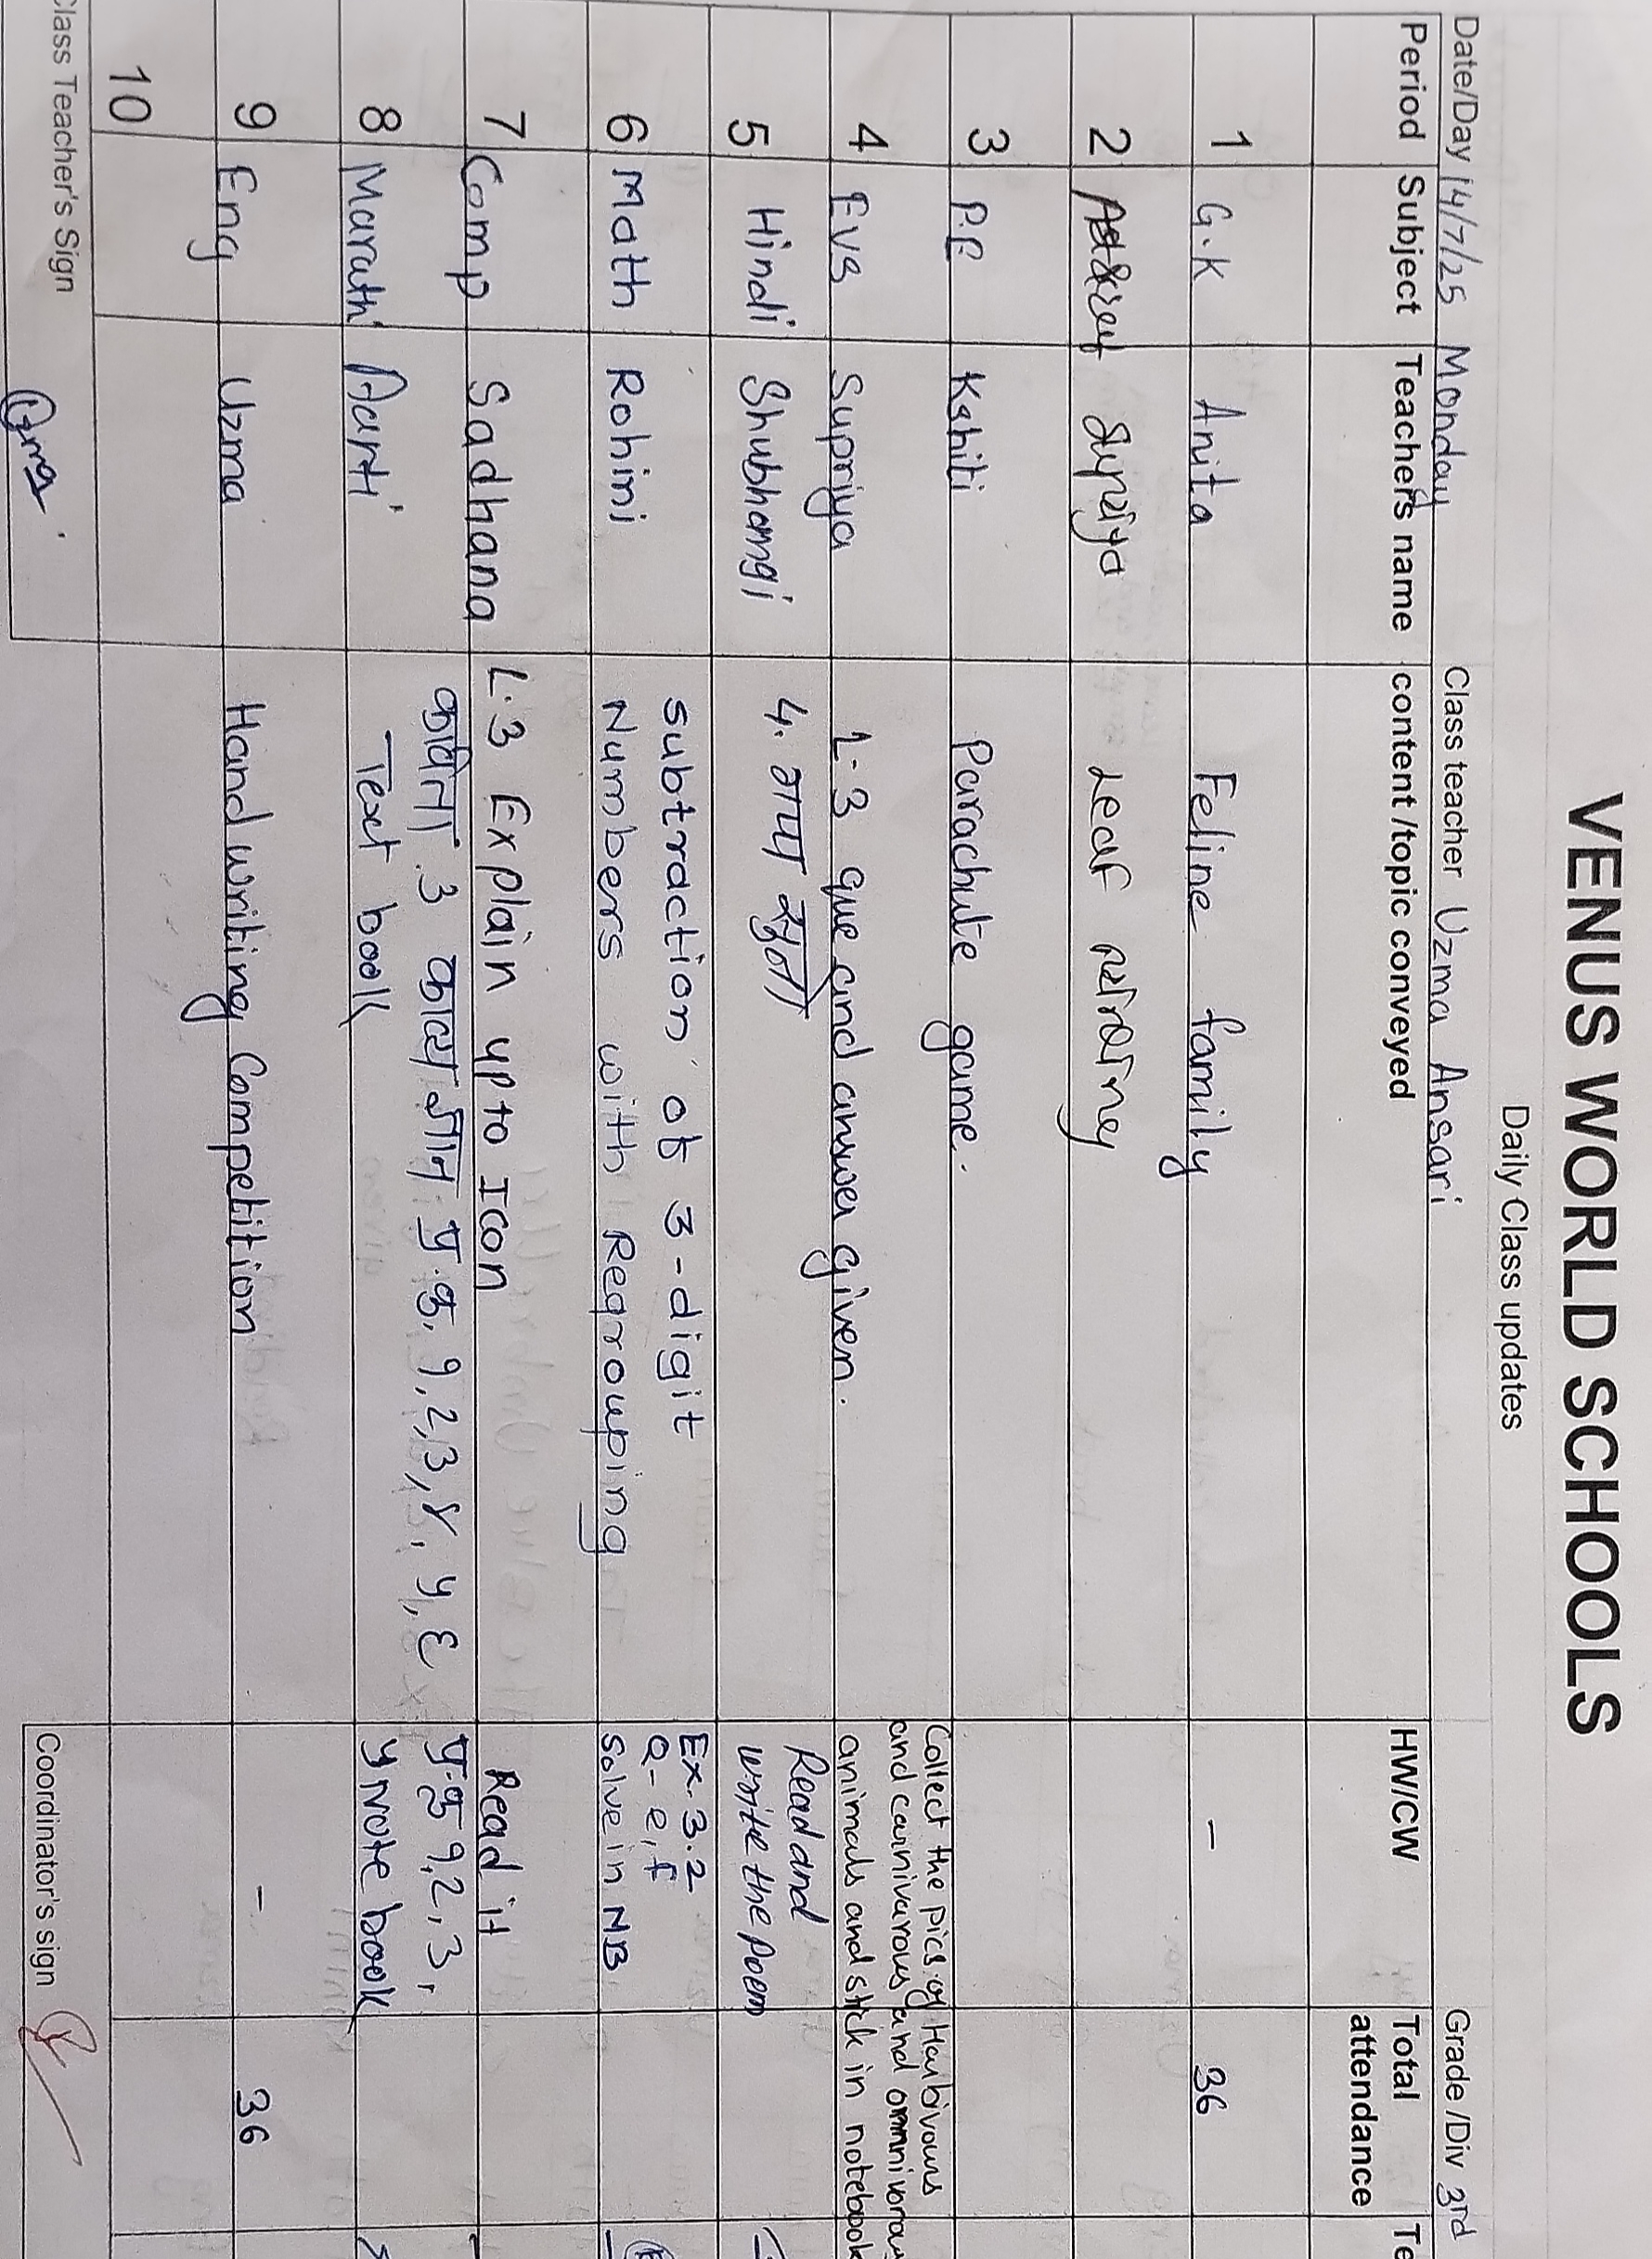 VENUS WORLD SCHOOLS
Daily Class updates
Date/Day 14/7/25 Monday Class teacher Uzma Ansari Grade /Div 3rd
Period Subject Teacher's name content /topic conveyed HW/CW Total attendance Te
1 G.K Anita Feline family - 36
2 Supriya Leaf
3 P.E Kshiti Parachute game.
4 Evs Supriya L-3 que and answer given. Collect the pics of Harbivours
and carnivurous and omnivorous
animals and stick in notebook
5 Hindi Shubhangi 4. Read and
write the Poem
6 Math Rohini subtraction of 3-digit Ex-3.2
Numbers with Regrouping Q- e, f
Solve in NB.
7 Comp Sadhana L.3 Explain upto Icon Read it
8 Marathi Aarti कविता 3 प्र.क्र. १, २, ३, ४, ५, ६ प्र.क्र १, २, ३,
Text book ५ note book
9 Eng Uzma Handwriting Competition - 36
10
Class Teacher's Sign Coordinator's sign